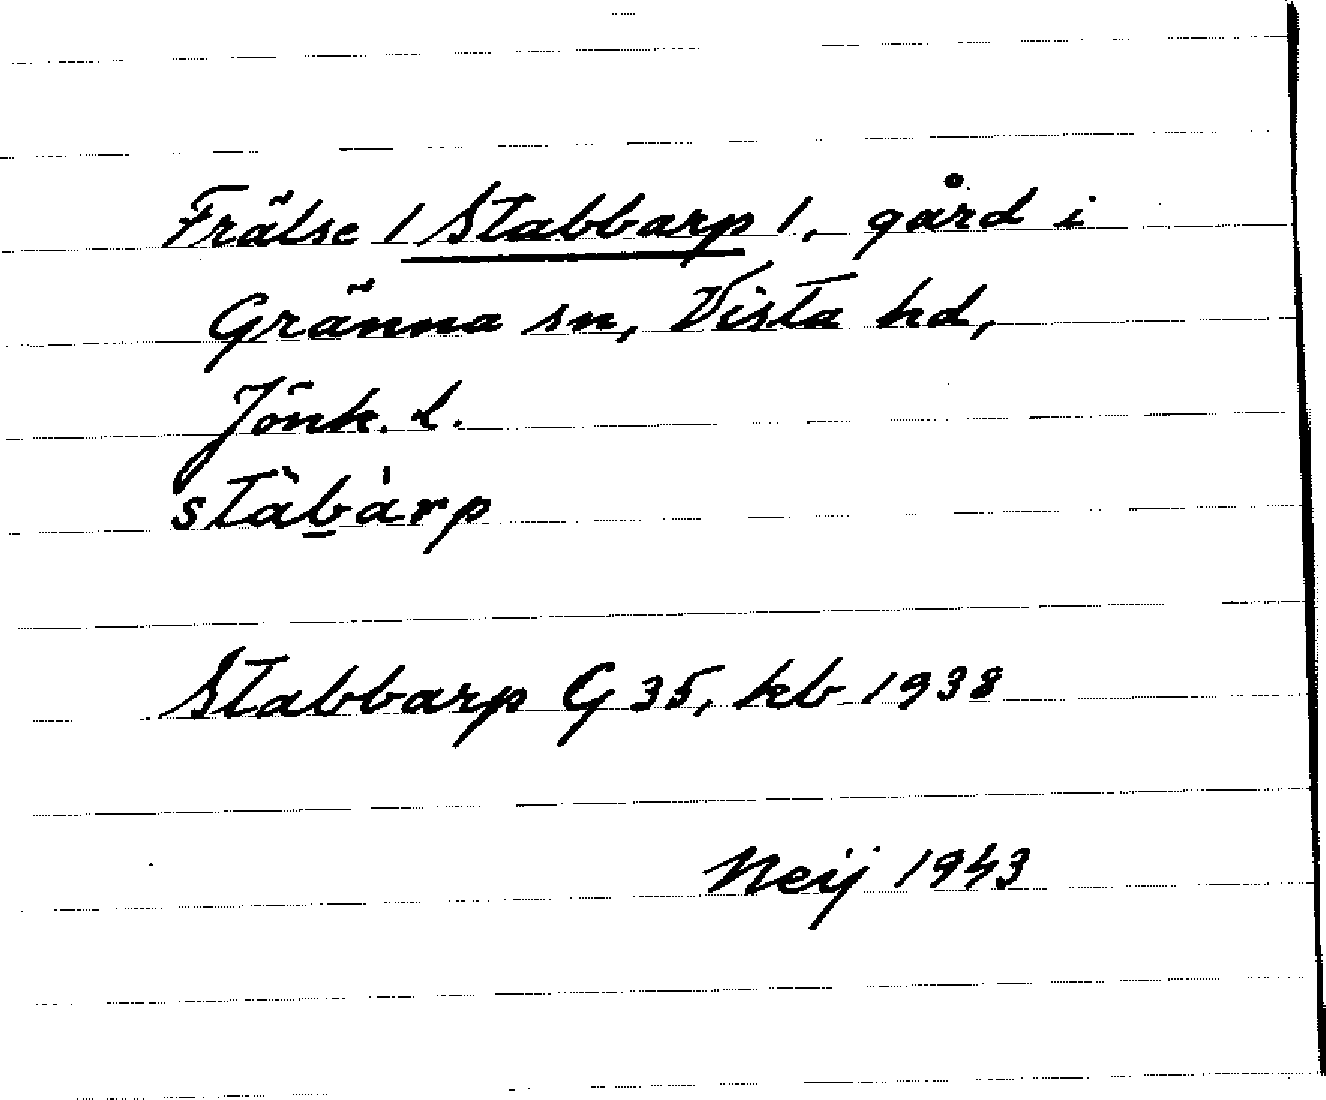 Frälse / Stabbarp /, gård i
Gränna sn, Vista hd,
Jönk. l.
stàb̲àrp
Stabbarp G 35, kb 1938
Neij 1943